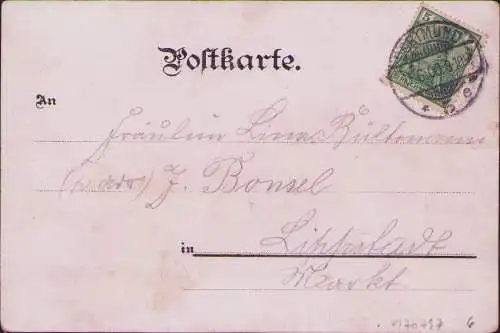 5
DORTMUND
Postkarte.
An
Fräulein Lina Bültmann
(p. adr.) J. Bonsel
in Lippstadt
Markt.
6